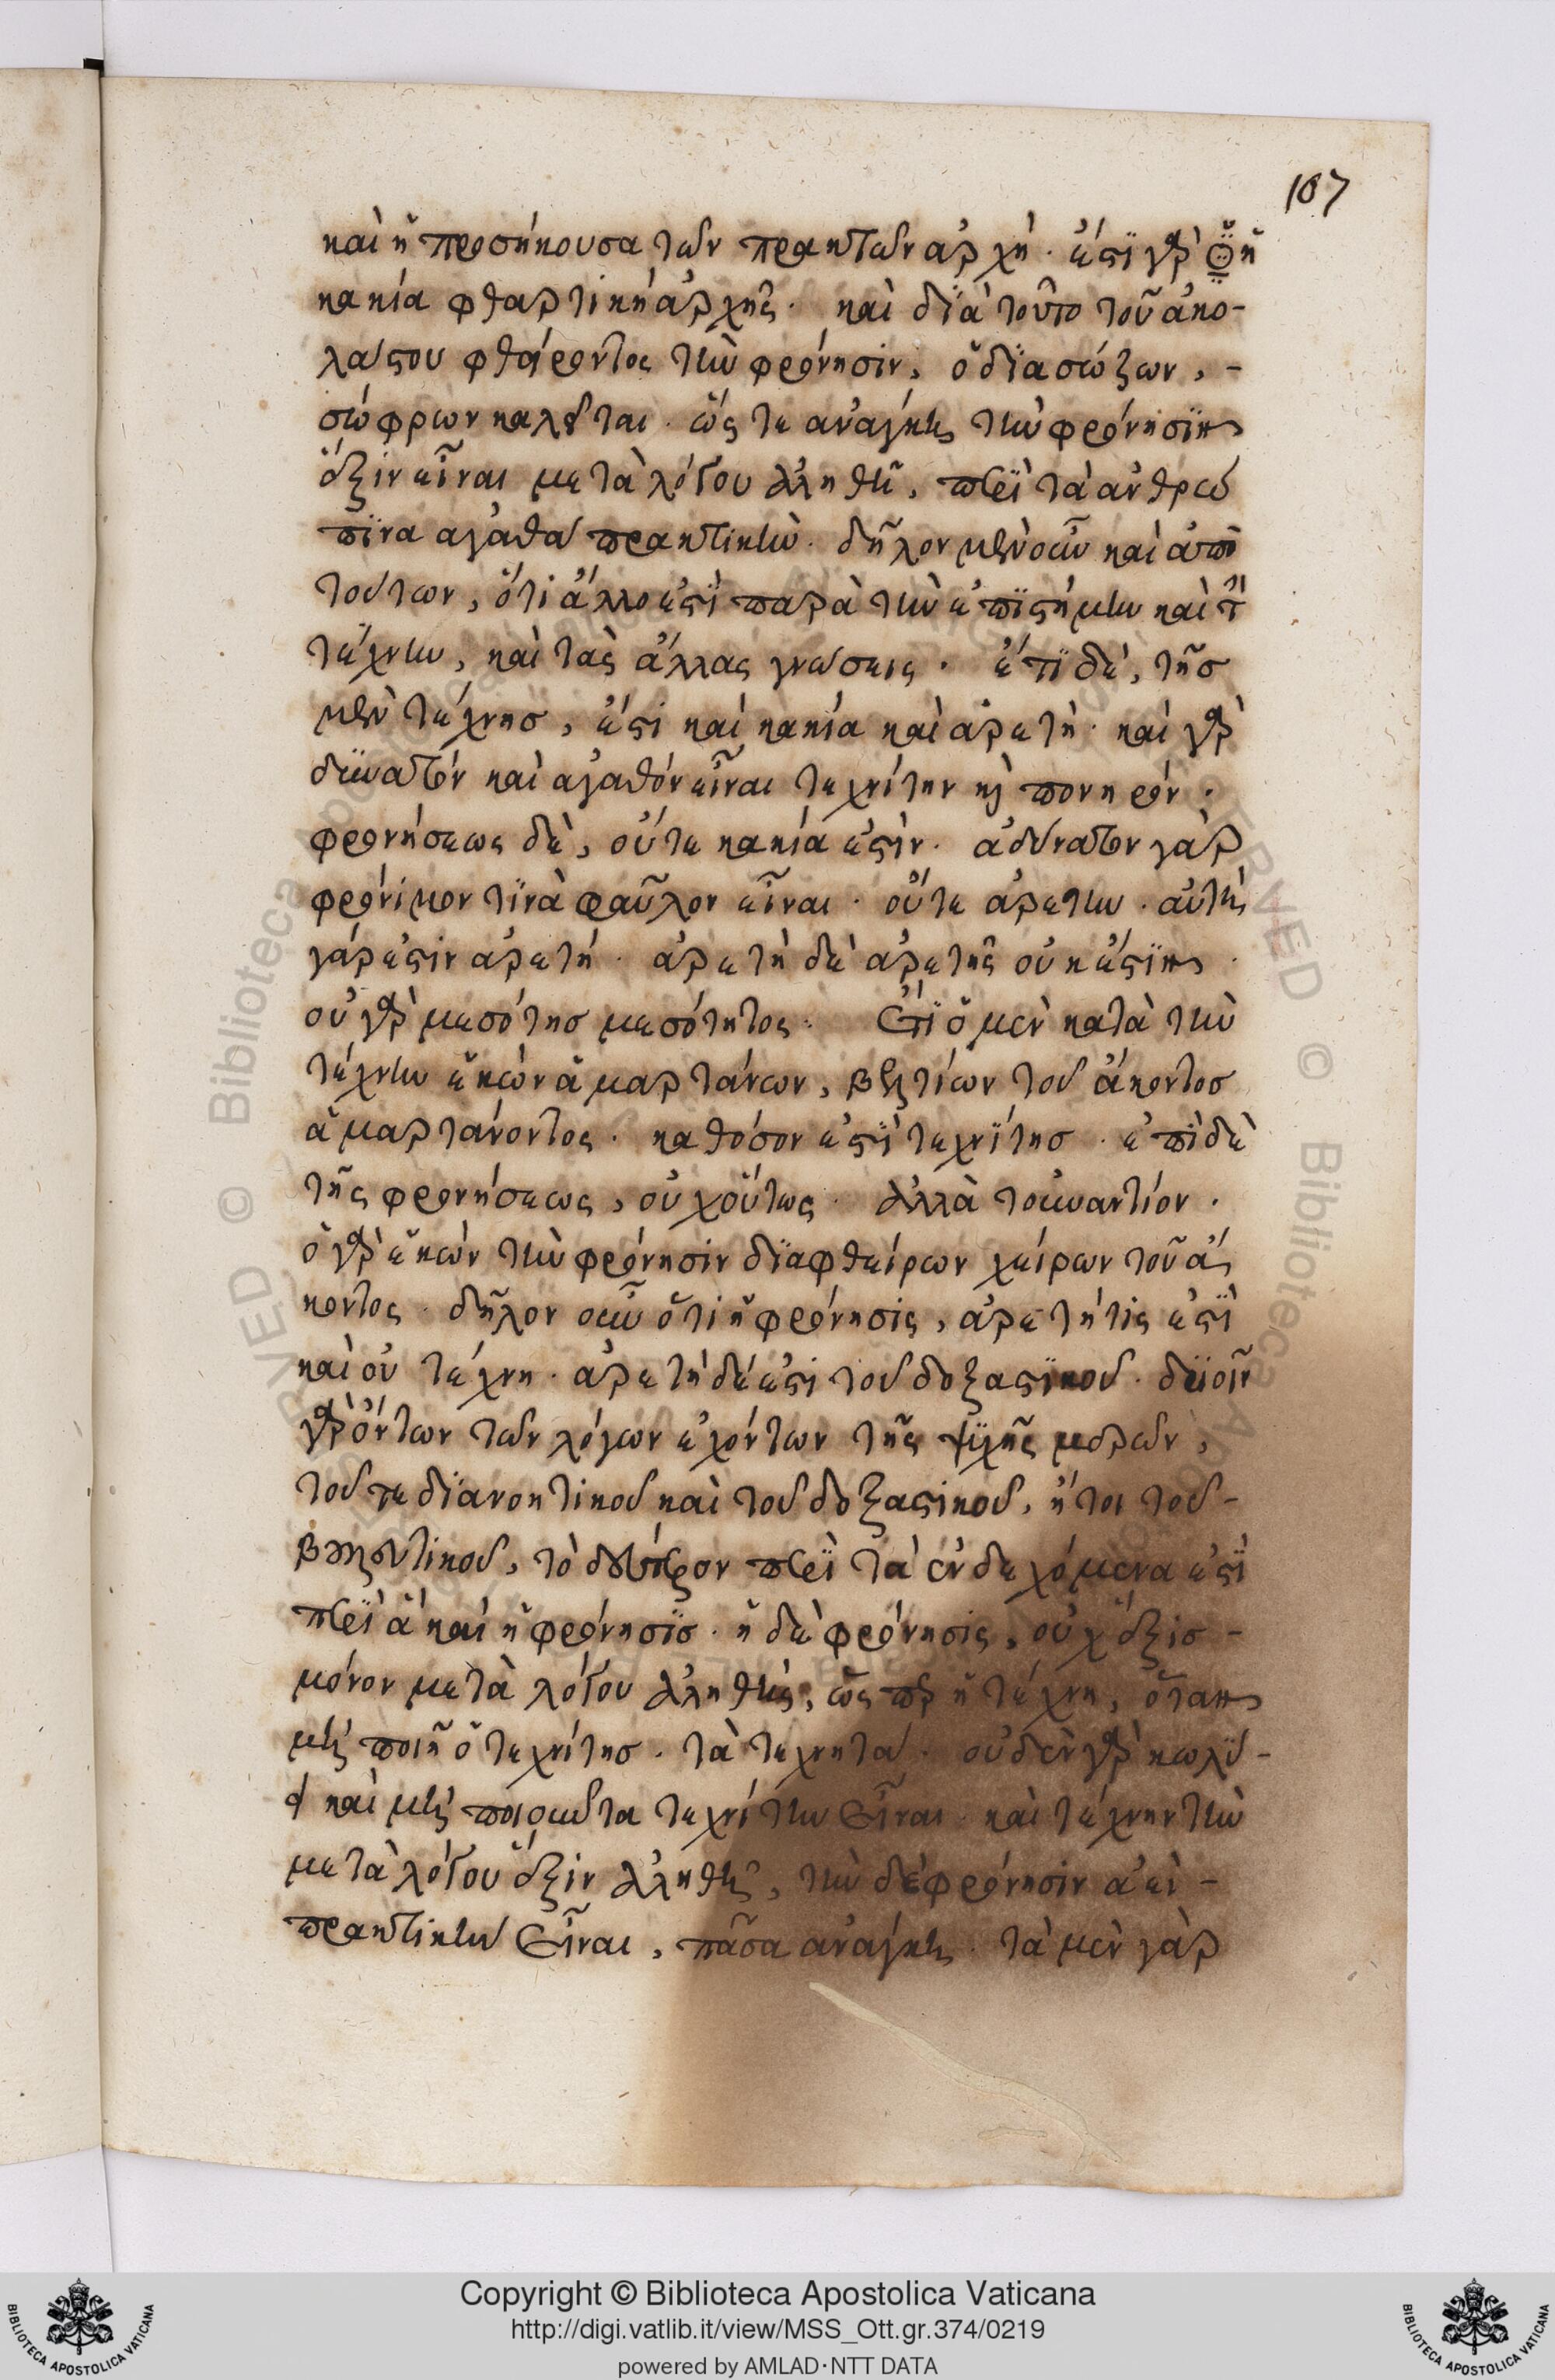 107
καὶ ἡ προσήκουσα τῶν πρακτῶν ἀρχή. ἔστι γὰρ ἡ
κακία φθαρτικὴ ἀρχῆς. καὶ διὰ τοῦτο τοῦ ἀκο-
λάστου φθείροντος τὴν φρόνησιν, ὁ διασώζων, -
σώφρων καλεῖται. ὥστε ἀνάγκη τὴν φρόνησιν
ἕξιν εἶναι μετὰ λόγου ἀληθῆ, περὶ τὰ ἀνθρώ
πινα ἀγαθὰ πρακτικήν. δῆλον μὲν οὖν καὶ ἀπὸ
τούτων, ὅτι ἄλλο ἐστὶ παρὰ τὴν ἐπιστήμην καὶ τὴν
τέχνην, καὶ τὰς ἄλλας γνώσεις. ἔτι δὲ, τῆς
μὲν τέχνης, ἔστι καὶ κακία καὶ ἀρετή. καὶ γὰρ
δυνατὸν καὶ ἀγαθὸν εἶναι τεχνίτην καὶ πονηρόν.
φρονήσεως δὲ, οὔτε κακία ἐστίν. ἀδύνατον γὰρ
φρόνιμον τινὰ φαῦλον εἶναι. οὔτε ἀρετήν. αὐτὴ
γάρ ἐστιν ἀρετή. ἀρετὴ δὲ ἀρετῆς οὐκ ἔστιν.
οὐ γὰρ μεσότης μεσότητος. Ἔτι ὁ μὲν κατὰ τὴν
τέχνην ἑκὼν ἁμαρτάνων, βελτίων τοῦ ἄκοντος
ἁμαρτάνοντος. καθόσον ἐστὶ τεχνίτης. ἐπὶ δὲ
τῆς φρονήσεως, οὐχ οὕτως. ἀλλὰ τοὐναντίον.
ὁ γὰρ ἑκὼν τὴν φρόνησιν διαφθείρων χείρων τοῦ ἄ
κοντος. δῆλον οὖν ὅτι ἡ φρόνησις, ἀρετή τις ἐστὶ
καὶ οὐ τέχνη. ἀρετὴ δέ ἐστι τοῦ δοξαστικοῦ. δυοῖν
γὰρ ὄντων τῶν λόγων ἐχόντων τῆς ψυχῆς μερῶν,
τοῦ τε διανοητικοῦ καὶ τοῦ δοξαστικοῦ, ἤτοι τοῦ -
βουλευτικοῦ, τὸ δεύτερον περὶ τὰ ἐνδεχόμενα ἐστὶ
περὶ ἃ καὶ ἡ φρόνησις. ἡ δὲ φρόνησις, οὐχ ἕξις -
μόνον μετὰ λόγου ἀληθής, ὥσπερ ἡ τέχνη, ὅταν
μὴ ποιῇ ὁ τεχνίτης. τὰ τεχνητά. οὐδὲν γὰρ κωλύ-
ει καὶ μὴ ποιοῦντα τεχνίτην εἶναι. καὶ τέχνην τὴν
μετὰ λόγου ἕξιν ἀληθῆ, τὴν δὲ φρόνησιν ἀεὶ -
πρακτικὴν εἶναι, πᾶσα ἀνάγκη. τὰ μὲν γὰρ
Copyright © Biblioteca Apostolica Vaticana
http://digi.vatlib.it/view/MSS_Ott.gr.374/0219
powered by AMLAD·NTT DATA
BIBLIOTECA APOSTOLICA VATICANA
BIBLIOTECA APOSTOLICA VATICANA